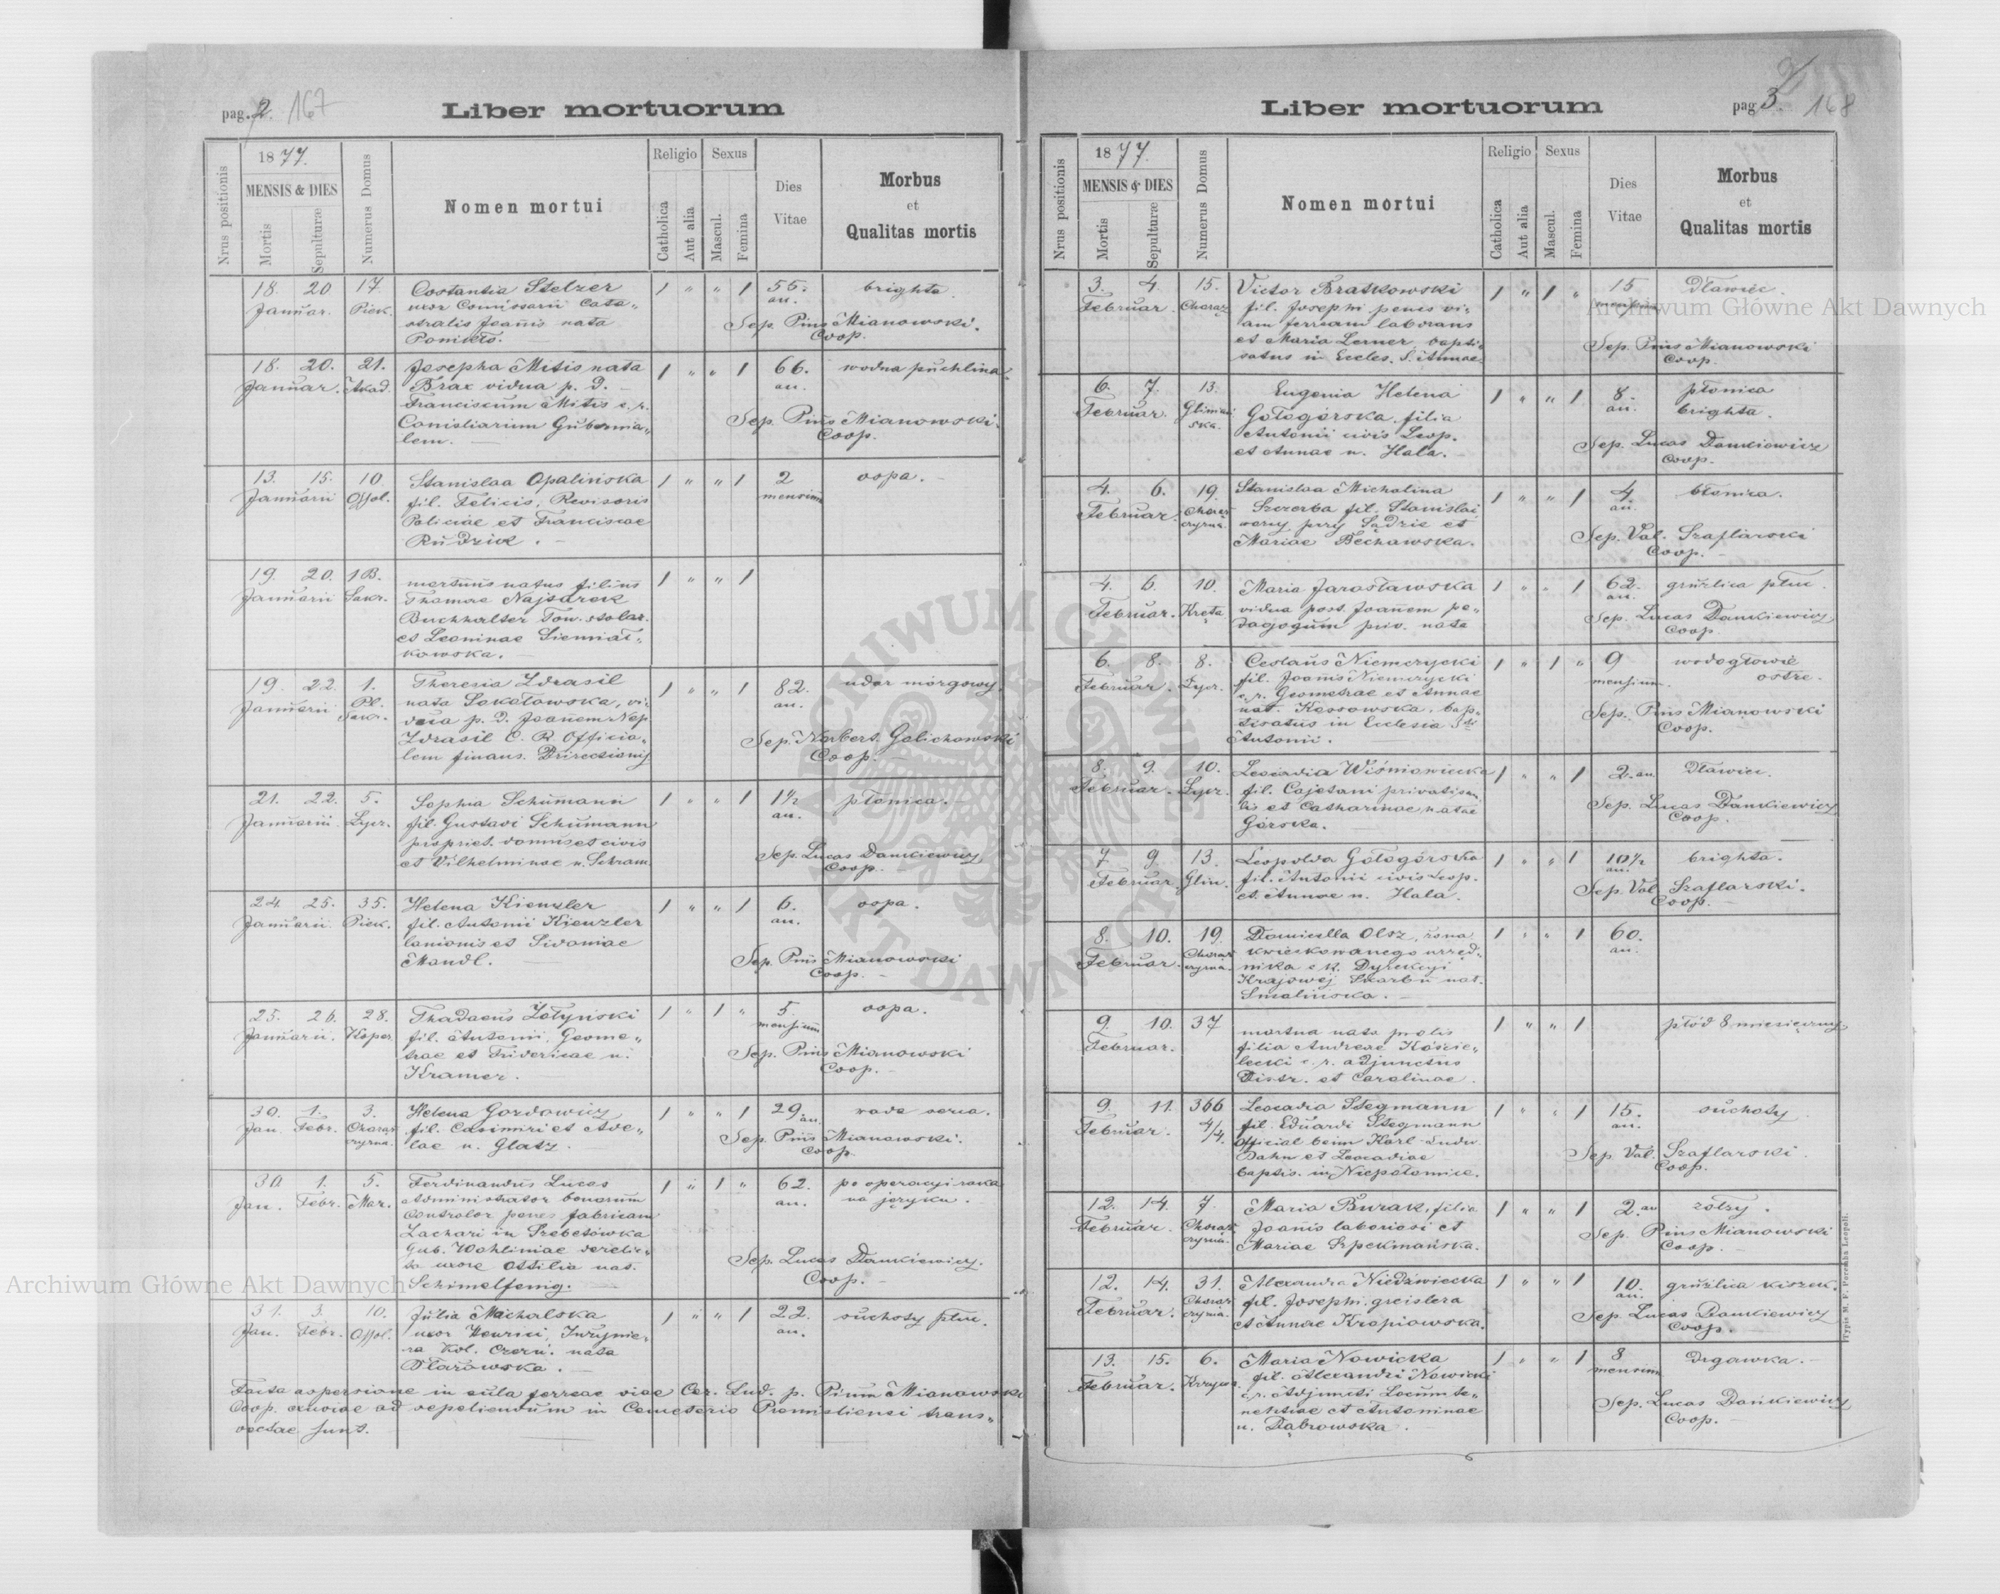 pag. 2. 167
Liber mortuorum
Nrus positionis
1877.
MENSIS & DIES
Mortis
Sepulturæ
Numerus Domus
Nomen mortui
Religio
Catholica
Aut alia
Sexus
Mascul.
Femina
Dies
Vitae
Morbus
et
Qualitas mortis
18. 20 17. Costantia Stelzer 1 " " 1 55. brighta.
Januar. Piek. uxor Comissarii Cata- an.
stralis Joanis nata Sep. Pius Mianowski.
Coop.
18. 20. 21. Josepha Mitis nata 1 " " 1 66. wodna puchlina.
Januar. Akad. Brac vidua p. d. an.
Franciscum Mitis c. r. Sep. Pius Mianowski.
Consiliarium Gubernia- Coop.
lem.
13. 15. 10. Stanislaa Opalińska 1 " " 1 2 ospa.
Januarii Ossol. fil. Felicis, Revisoris mensium
Policiae et Franciscae
Rudzick.
19. 20. 1B. mortuus natus filius 1 " " 1
Januarii Sakr. Thomae Najsarek
Buchhalter Tow. stolar.
et Leoninae Sienniat-
kowska.
19. 22. 1. Theresia Zdrasil 1 " " 1 82. udar mózgowy.
Januarii Pl. Sakr. nata Sokołowska, vi- an.
dua p. d. Joanem Nep. Sep. Norbert. Golichowski
Zdrasil C. R. Officia- Coop.
lem finans. Direction
21. 22. 5. Sophia Schumann 1 " " 1 1½ płonica.
Januarii Lycz. fil. Gustavi Schumann an.
propriet. domus et civis Sep. Lucas Dankiewicz
et Vilhelminae n. Schram Coop.
24 25. 35. Helena Kienzler 1 " " 1 6. ospa.
Januarii. Piek. fil. Antonii Kienzler an.
lanionis et Sidoniae Sep. Pius Mianowski
Mandl. Coop.
25. 26. 28. Thadaeus Żotyński 1 " 1 " 5. ospa.
Januarii. Koper. fil. Antonii, Geome- mensium
trae et Fridericae n. Sep. Pius Mianowski
Kramer. Coop.
30. 1. 3. Helena Gozdowicz 1 " " 1 29. wada serca.
Jan. Febr. Chorąż- czyzna. fil. Casimiri et Ade- an.
lae n. Glatz. Sep. Pius Mianowski.
Coop.
30 1. 5. Ferdinandus Lucas 1 " 1 " 62. po operacyi raka
Jan. Febr. Mar. Administrator bonorum an. na języku.
Controlor penes fabricam
Zachari in Szebetówka
Gub. Wohliniae derelic- Sep. Lucas Dankiewicz.
ta uxore Ottilia nat. Coop.
Schimelfenig.
31. 3. 10. Julia Michalska 1 " " 1 22. suchoty płuc.
Jan. Febr. Ossol. uxor Henrici, Inżynie- an.
ra kol. Czern. nata
Flarowska.
Facta aspersione in aula ferreae viae Car. Lud. p. Pium Mianowski
Coop. exuviae ad sepeliendum in Cemeterio Premisliensi trans-
vectae sunt.
pag 3. 168
Liber mortuorum
Nrus positionis
1877.
MENSIS & DIES
Mortis
Sepulturæ
Numerus Domus
Nomen mortui
Religio
Catholica
Aut alia
Sexus
Mascul.
Femina
Dies
Vitae
Morbus
et
Qualitas mortis
3. 4. 15. Victor Bratkowski 1 " 1 " 15 Dławiec.
Februar. Chorąż. fil. Josephi penes vi- mensium
am ferream laborans
et Maria Lerner, bapti- Sep. Pius Mianowski
satus in Eccles. S. Annae Coop.
6. 7. 13. Eugenia Helena 1 " " 1 8. płonica
Februar. Glinian- ska. Gołogórska, filia an. brighta.
Antonii civis Leop. Sep. Lucas Dankiewicz
et Annae n. Hala. Coop.
4. 6. 19. Stanislaa Michalina 1 " " 1 4 błonica.
Februar. Chorąż- czyzna. Szczerba fil. Stanislai an.
woźny przy Sądzie et Sep. Val. Szaflarski
Mariae Bechawska. Coop.
4. 6. 10. Maria Jarosławska 1 " " 1 62. gruźlica płuc.
Februar. Kręta vidua post. Joanem pe- an.
dagogum priv. nata Sep. Lucas Dankiewicz
Coop
6. 8. 8. Ceslaus Niemczycki 1 " 1 " 9 wodogłowie
Februar. Lycz. fil. Joanis Niemczycki mensium. ostre.
c. r. Geometrae et Annae
nat. Kossowska, bap- Sep. Pius Mianowski
tisatus in Ecclesia Sti Coop.
Antonii.
8. 9. 10. Leocadia Wiśniowiecka 1 " " 1 2. an. Dławiec.
Februar. Lycz. fil. Cajetani privatisan-
tis et Catharinae natae Sep. Lucas Dankiewicz
Górska. Coop.
7 9 13. Leopolda Gołogórska 1 " " 1 10½ brighta.
Februar Glin. fil. Antonii civis Leop. an.
et Annae n. Hala. Sep. Val. Szaflarski.
Coop.
8. 10. 19. Domicella Olsz, żona 1 " " 1 60.
Februar. Chorąż- czyzna. kwieskowanego urzęd- an.
nika c. k. Dyrekcyi
Krajowej Skarbu nat.
Smalińska.
9. 10. 37 mortua nata prolis 1 " " 1 płód 8 miesięczny.
Februar. filia Andreae Koście-
lecki c. r. adjunctus
Distr. et Carolinae.
9. 11. 366 4/4. Leocadia Stegmann 1 " " 1 15. suchoty
Februar. fil. Eduardi Stegmann an.
Official beim Karl Ludw. Sep. Val. Szaflarski.
Bahn et Leocadiae Coop.
baptis. in Niepołomice.
12. 14. 7 Maria Burak, filia 1 " " 1 2. an zołzy.
Februar. Chorąż- czyzna. Joanis laboriosi et Sep. Pius Mianowski
Mariae Szpekmańska. Coop.
12. 14. 31. Alexandra Niedźwiecka 1 " " 1 10. gruźlica kiszek.
Februar. Chorąż- czyzna. fil. Josephi, greislera an.
et Annae Kropiowska. Sep. Lucas Dankiewicz
Coop.
13. 15. 6. Maria Nowicka 1 " " 1 8 Drgawka.
Februar. fil. Alexandri Nowicki mensium
c. r. Adjuncti Locumte- Sep. Lucas Dankiewicz
nentiae et Antoninae Coop.
n. Dąbrowska.
Typis M. F. Poremba Leopoli.
Archiwum Główne Akt Dawnych
Archiwum Główne Akt Dawnych
ARCHIWUM GŁÓWNE AKT DAWNYCH